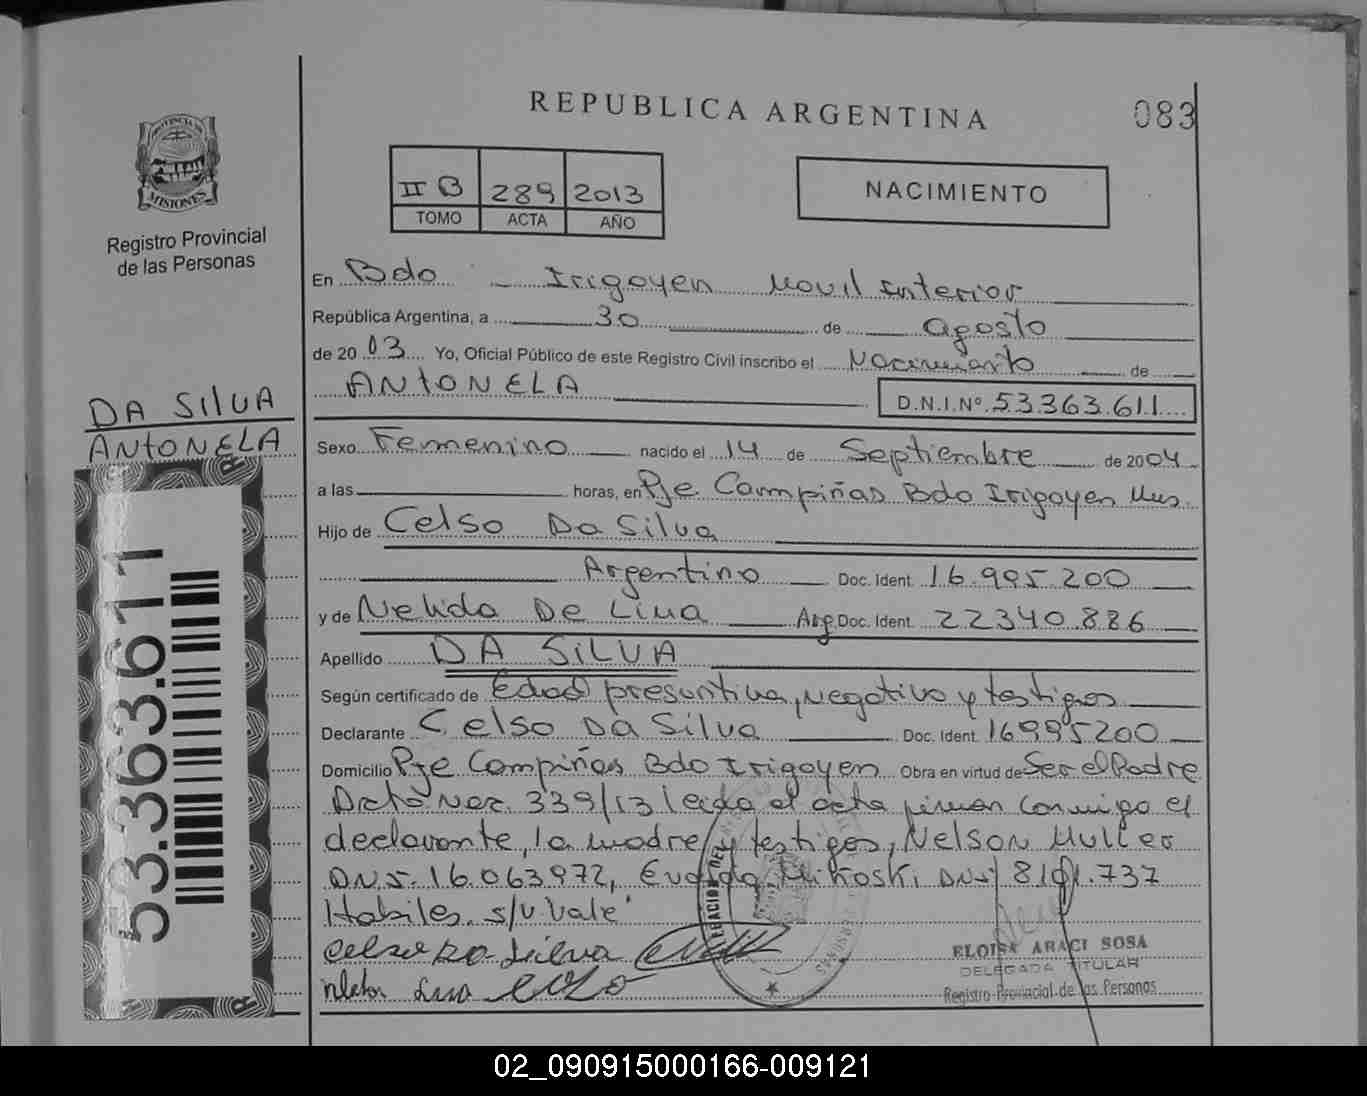 REPUBLICA ARGENTINA
083
PROVINCIA DE
MISIONES
Registro Provincial
de las Personas
II B 289 2013
TOMO ACTA AÑO
NACIMIENTO
En Bdo Irigoyen Movil interior
República Argentina, a 30 de agosto
de 20 03 Yo, Oficial Público de este Registro Civil inscribo el Nacimiento de
ANTONELA
D.N.I.Nº 53.363.611
DA SILVA
ANTONELA
Sexo Femenino nacido el 14 de Septiembre de 2004
a las horas, en Pje Campiñas Bdo Irigoyen Mns.
Hijo de Celso Da Silva
Argentino Doc. Ident. 16.995.200
y de Nelida De Lima Arg. Doc. Ident. 22340.886
Apellido DA SILVA
Según certificado de Edad presuntiva, negativo y testigos
Declarante Celso Da Silva Doc. Ident. 16995200
Domicilio Pje Campiñas Bdo Irigoyen Obra en virtud de Ser el Padre
Dcto Nac. 339/13 leida el acta firman conmigo el
declarante, la madre y testigos, Nelson Muller
DNI. 16.063.972, Mikoski DNI
Habiles. s/v. Vale
Celso Da Silva
ELOISA ARACI SOSA
DELEGADA TITULAR
Registro Provincial de las Personas
53.363.611
02_090915000166-009121